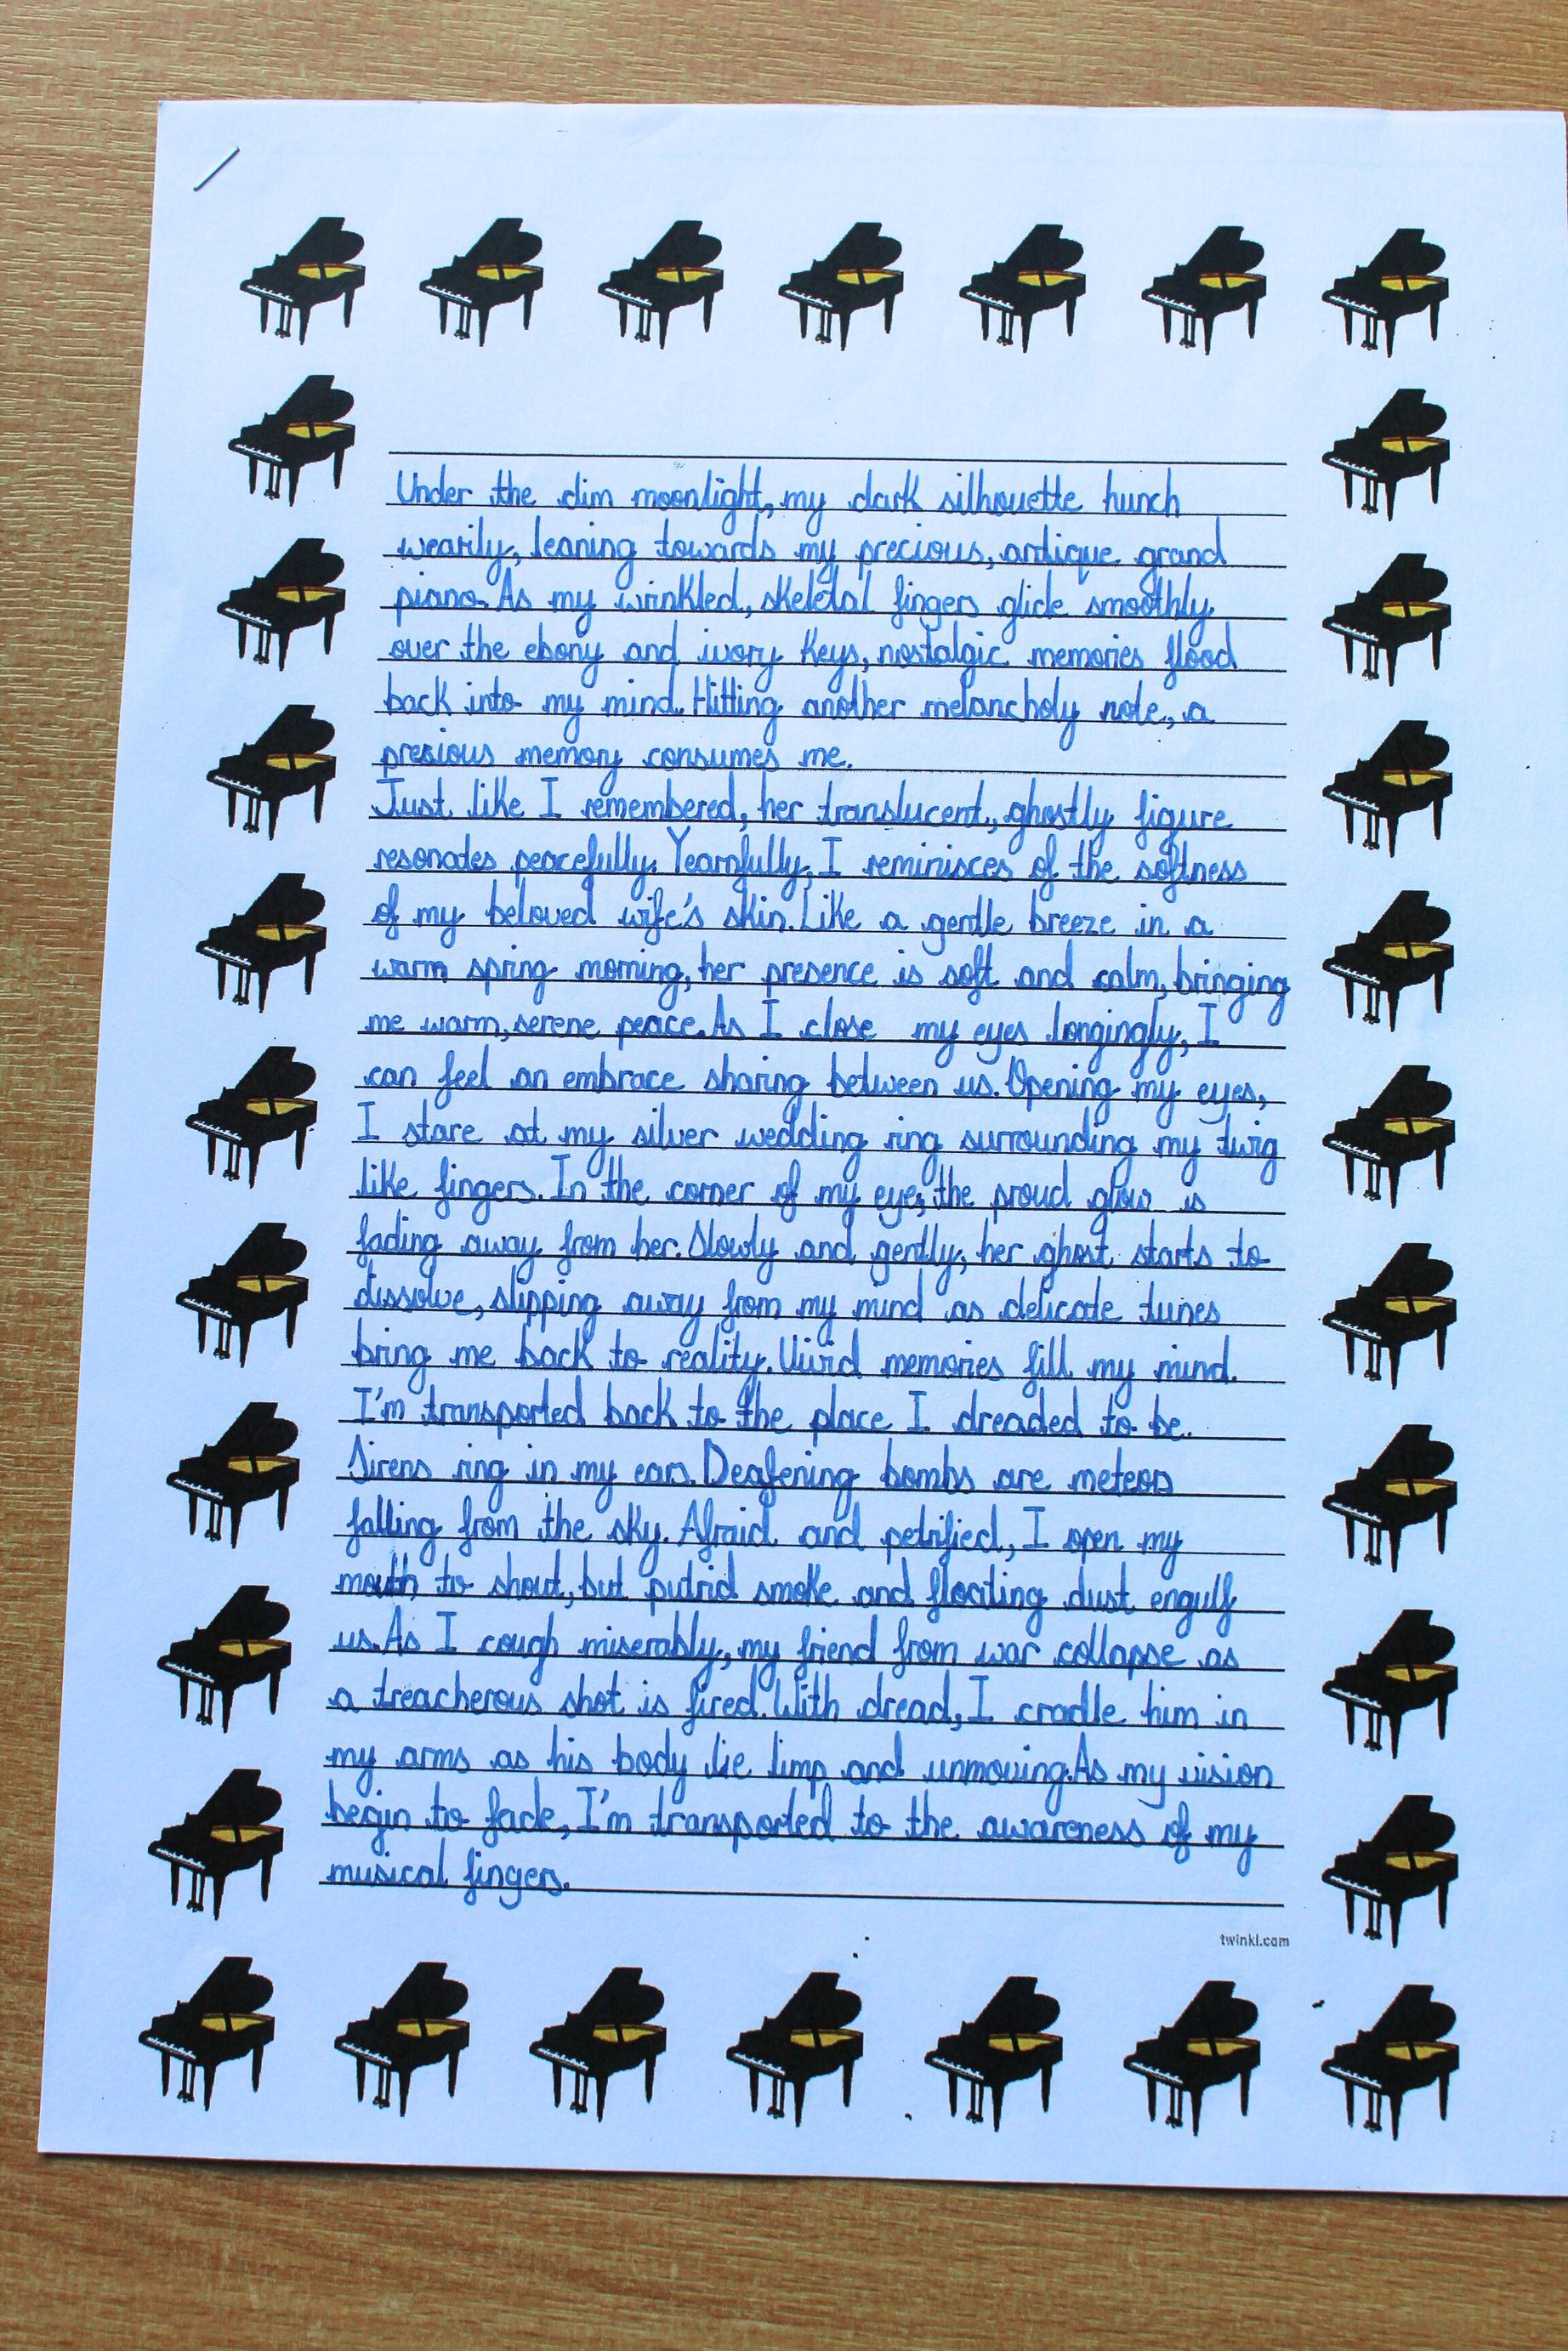 Under the dim moonlight, my dark silhouette hunch
wearily, leaning towards my precious, antique grand
piano. As my wrinkled, skeletal fingers glide smoothly
over the ebony and ivory keys, nostalgic memories flood
back into my mind. Hitting another melancholy note, a
precious memory consumes me.
Just like I remembered, her translucent, ghostly figure
resonates peacefully. Yearnfully, I reminisces of the softness
of my beloved wife's skin. Like a gentle breeze in a
warm spring morning, her presence is soft and calm, bringing
me warm, serene peace. As I close my eyes longingly, I
can feel an embrace sharing between us. Opening my eyes,
I stare at my silver wedding ring surrounding my twig
like fingers. In the corner of my eye, the proud glow is
fading away from her. Slowly and gently, her ghost starts to
dissolve, slipping away from my mind as delicate tunes
bring me back to reality. Vivid memories fill my mind.
I'm transported back to the place I dreaded to be.
Sirens ring in my ears. Deafening bombs are meteors
falling from the sky. Afraid and petrified, I open my
mouth to shout, but putrid smoke and floating dust engulf
us. As I cough miserably, my friend from war collapse as
a treacherous shot is fired. With dread, I cradle him in
my arms as his body lie limp and unmoving. As my vision
begin to fade, I'm transported to the awareness of my
musical fingers.
twinkl.com